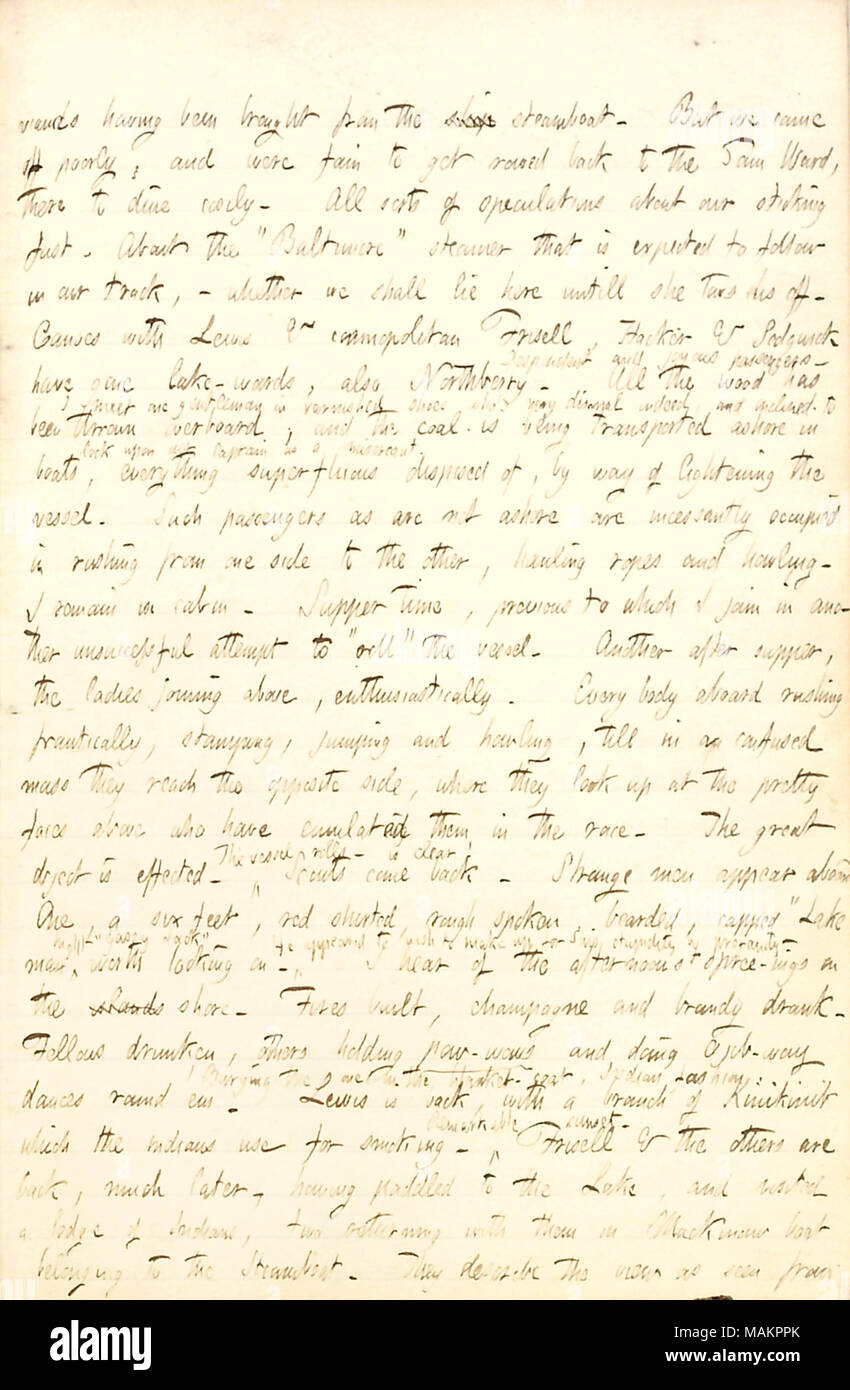 wands having been brought from the ship steamboat. But we came
off poorly, and were fain to get rowed back to the Sam Ward,
there to dine cosily. All sorts of speculations about our sticking
fast. About the "Baltimore" steamer that is expected to follow
in our track, - whether we shall lie here untill she tows us off -
Canoes with Lewis & cosmopolitan Frisell, Hacker & Sedgwick
Despondent and joyous passengers -
have gone lake-wards, also Northberry - All the wood has
I meet one gentleman in varnished shoes who's very dismal indeed, and inclined to
been thrown overboard, and the coal is being transported ashore in
look upon our captain as a miscreant.
boats, everything superfluous disposed of, by way of lightening the
vessel. Such passengers as are not ashore are incessantly occupied
in rushing from one side to the other, hauling ropes and howling -
I remain in cabin - Supper time, previous to which I join in ano-
ther unsuccessful attempt to "roll" the vessel. Another after supper,
the ladies joining above, enthusiastically. Every body aboard rushing
frantically, stamping, jumping and howling, till in a confused
mass they reach the opposite side, where they look up at the pretty
faces above who have emulated them in the race - The great
The vessel rolls - is clear!
object is effected - Scouts come back - Strange men appear aboard
One, a six feet, red shirted, rough spoken, bearded, capped "Lake
He appeared to wish to make up for stupidity by profanity -
man, worth looking on - I hear of the afternoon's spree-ings on
the islands shore - Fires built, champagne and brandy drank -
Fellows drunken, others holding pow-wows and doing Ojib-way
in the blanket-coat, Indian fashion:
dances round em - Lewis is back, with a branch of Kinikinit
Remarkable sunset -
which the indians use for smoking - Frisell & the others are
back, much later, having paddled to the Lake, and visited
a lodge of Indians, two returning with them in Mackinaw boat
belonging to the Steamboat - They describe the view as seen from
alamy
Image ID: MAKPPK
www.alamy.com